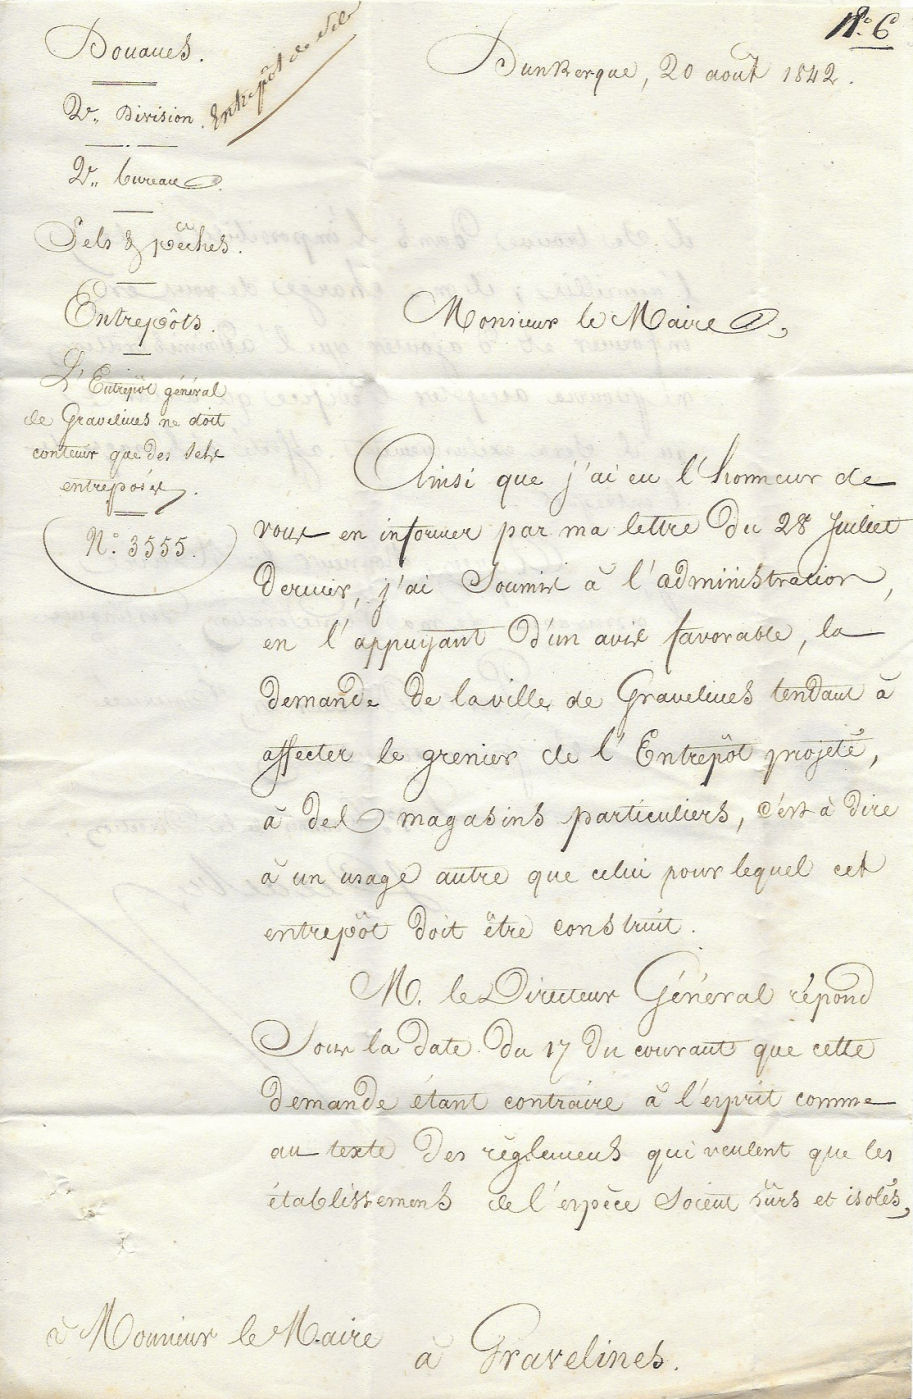 N.° 6
Entrepôt de Sels
Douanes.
Dunkerque, 20 août 1842.
2e. Division.
2e. bureau.
Sels & pêches.
Entrepôts.
Monsieur le Maire,
L'Entrepôt général
de Gravelines ne doit
contenir que des sels
entreposés.
N.° 3555.
Ainsi que j'ai eu l'honneur de
vous en informer par ma lettre du 28 Juillet
dernier, j'ai soumis à l'administration,
en l'appuyant d'un avis favorable, la
demande de la ville de Gravelines tendant à
affecter le grenier de l'Entrepôt projeté,
à des magasins particuliers, c'est à dire
à un usage autre que celui pour lequel cet
entrepôt doit être construit.
M. le Directeur Général répond
sous la date du 17 du courant que cette
demande étant contraire à l'esprit comme
au texte des règlemens qui veulent que les
établissemens de l'espèce soient sûrs et isolés,
à Monsieur le Maire
à Gravelines.